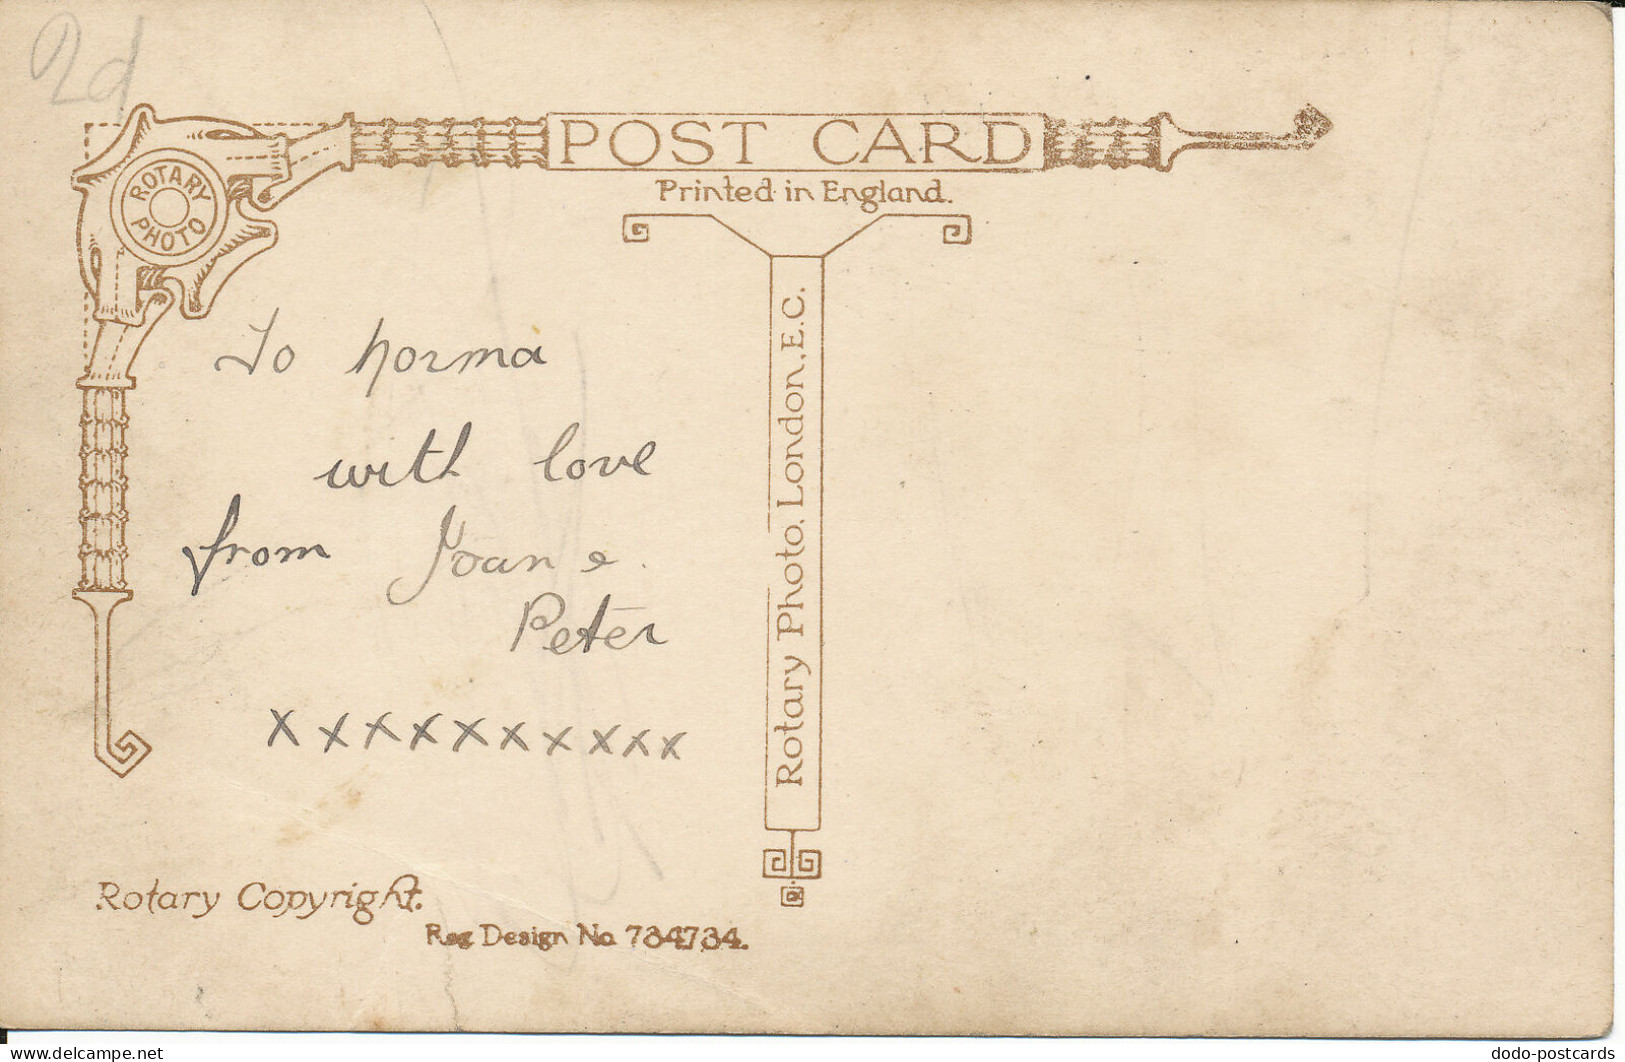 2d
POST CARD
Printed in England.
ROTARY
PHOTO
To Norma
with love
from Joan &
Peter
X X X X X X X X X X
Rotary Photo. London, E.C.
Rotary Copyright.
Reg Design No 734734.
delcampe.net
dodo-postcards